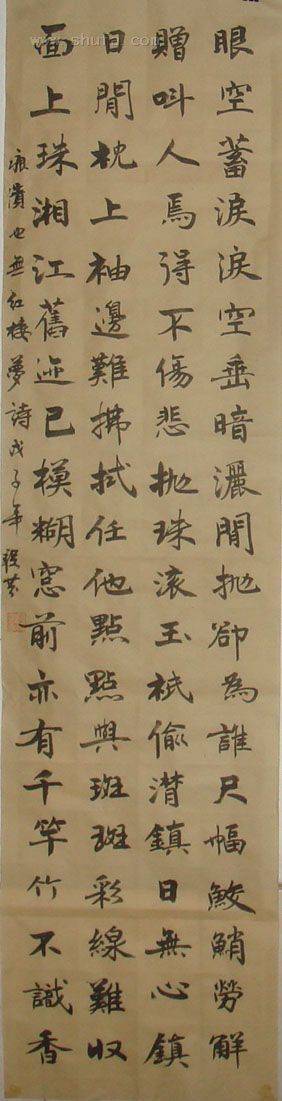 眼空蓄淚淚空垂暗灑閒抛卻為誰尺幅鮫鮹勞解
贈叫人焉得不傷悲抛珠滾玉祇偷潸鎮日無心鎮
日閒枕上袖邊難拂拭任他點點與斑斑彩線難收
面上珠湘江舊迹已模糊窓前亦有千竿竹不識香
痕漬也無紅樓夢詩戊子年